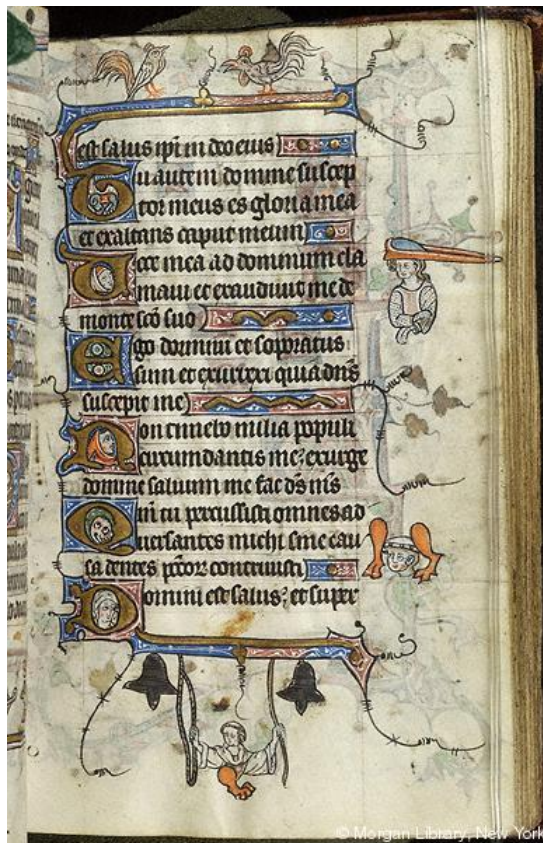 est salus ipi in deo eius
Tu autem domine suscep
tor meus es gloria mea
et exaltans caput meum
Uoce mea ad dominum cla
maui et exaudiuit me de
monte sco suo
Ego dormiui et soporatus
sum et exurrexi quia dns
suscepit me
Non timebo milia populi
circumdantis me: exurge
domine saluum me fac ds ms
Qm tu percussisti omnes ad
uersantes michi sine cau
sa dentes pctor contriuisti
Domini est salus: et super
© Morgan Library, New York